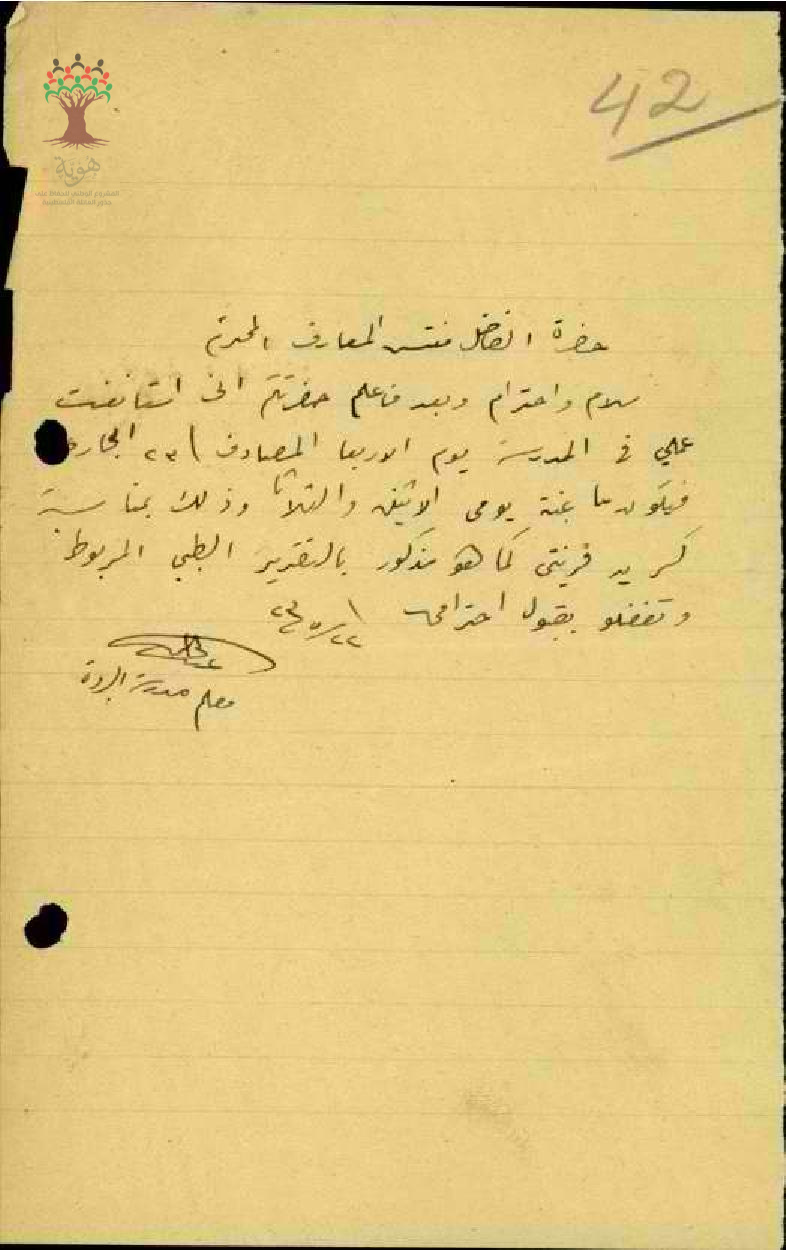 42
هوية
المشروع الوطني للحفاظ على
جذور العائلة الفلسطينية
حضرة الفاضل مفتش المعارف المحترم
سلام واحترام وبعد فاعلم حضرتكم اني استأنفت
عملي في المدرسة يوم الاربعا المصادف ٢٣ الجاري
يومي الاثنين والثلاثا وذلك بمناسبة
كسر يد قرينتي كما هو مذكور بالتقرير الطبي المربوط
وتفضلو بقبول احترامي
معلم مدرسة البروة